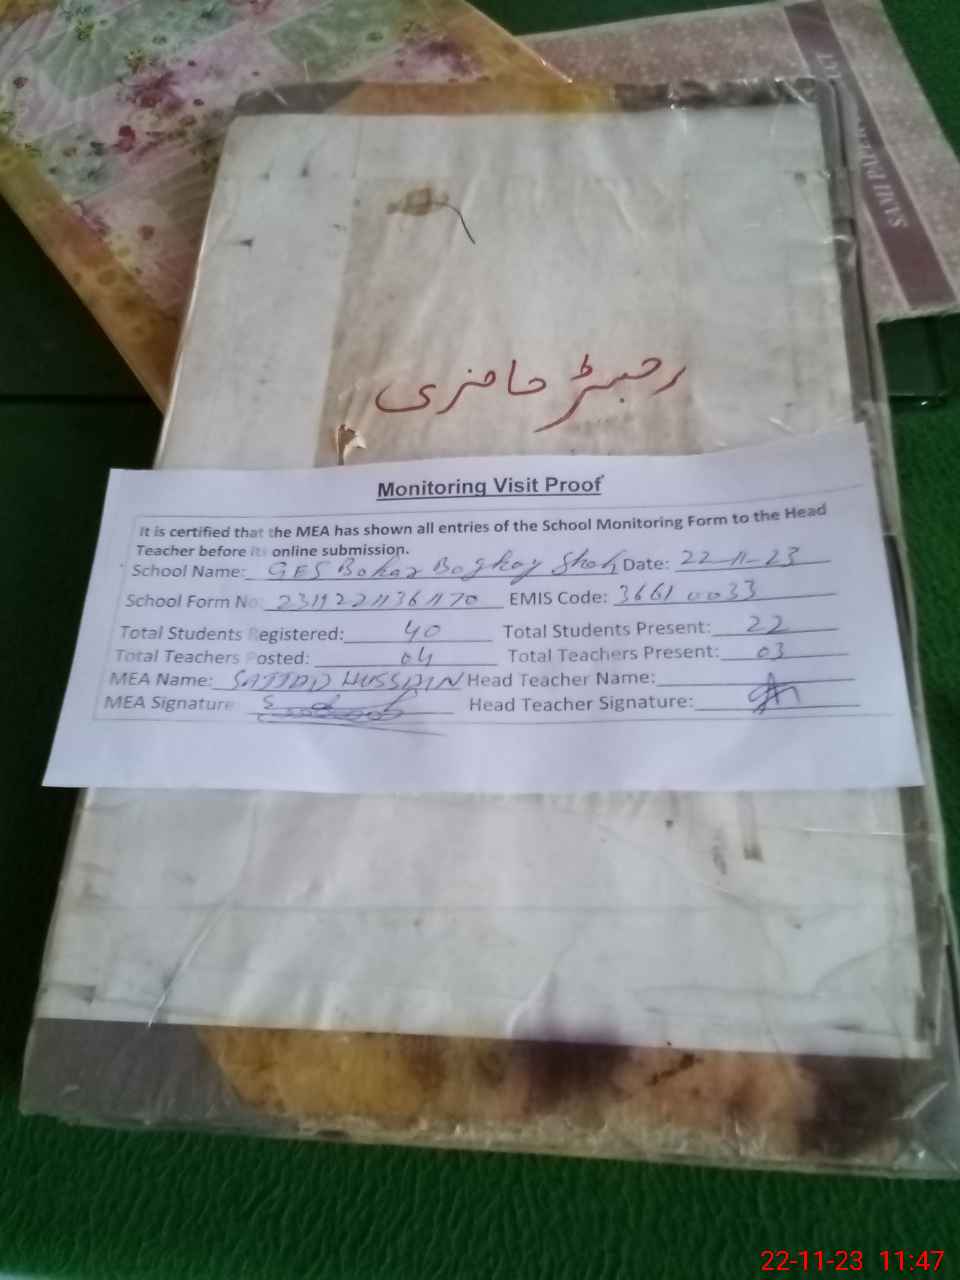 رجسٹر حاضری
Monitoring Visit Proof
It is certified that the MEA has shown all entries of the School Monitoring Form to the Head
Teacher before its online submission.
School Name: GES Bokar Shah Date: 22-11-23
School Form No: EMIS Code: 36610033
Total Students Registered: 40 Total Students Present: 22
Total Teachers Posted: 04 Total Teachers Present: 03
MEA Name: SAJJAD HUSSAIN Head Teacher Name:
MEA Signature: Head Teacher Signature:
22-11-23 11:47